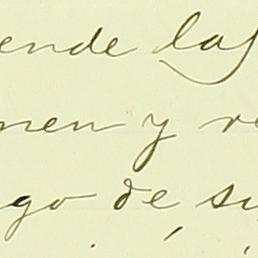 ende las
men y re
go de su